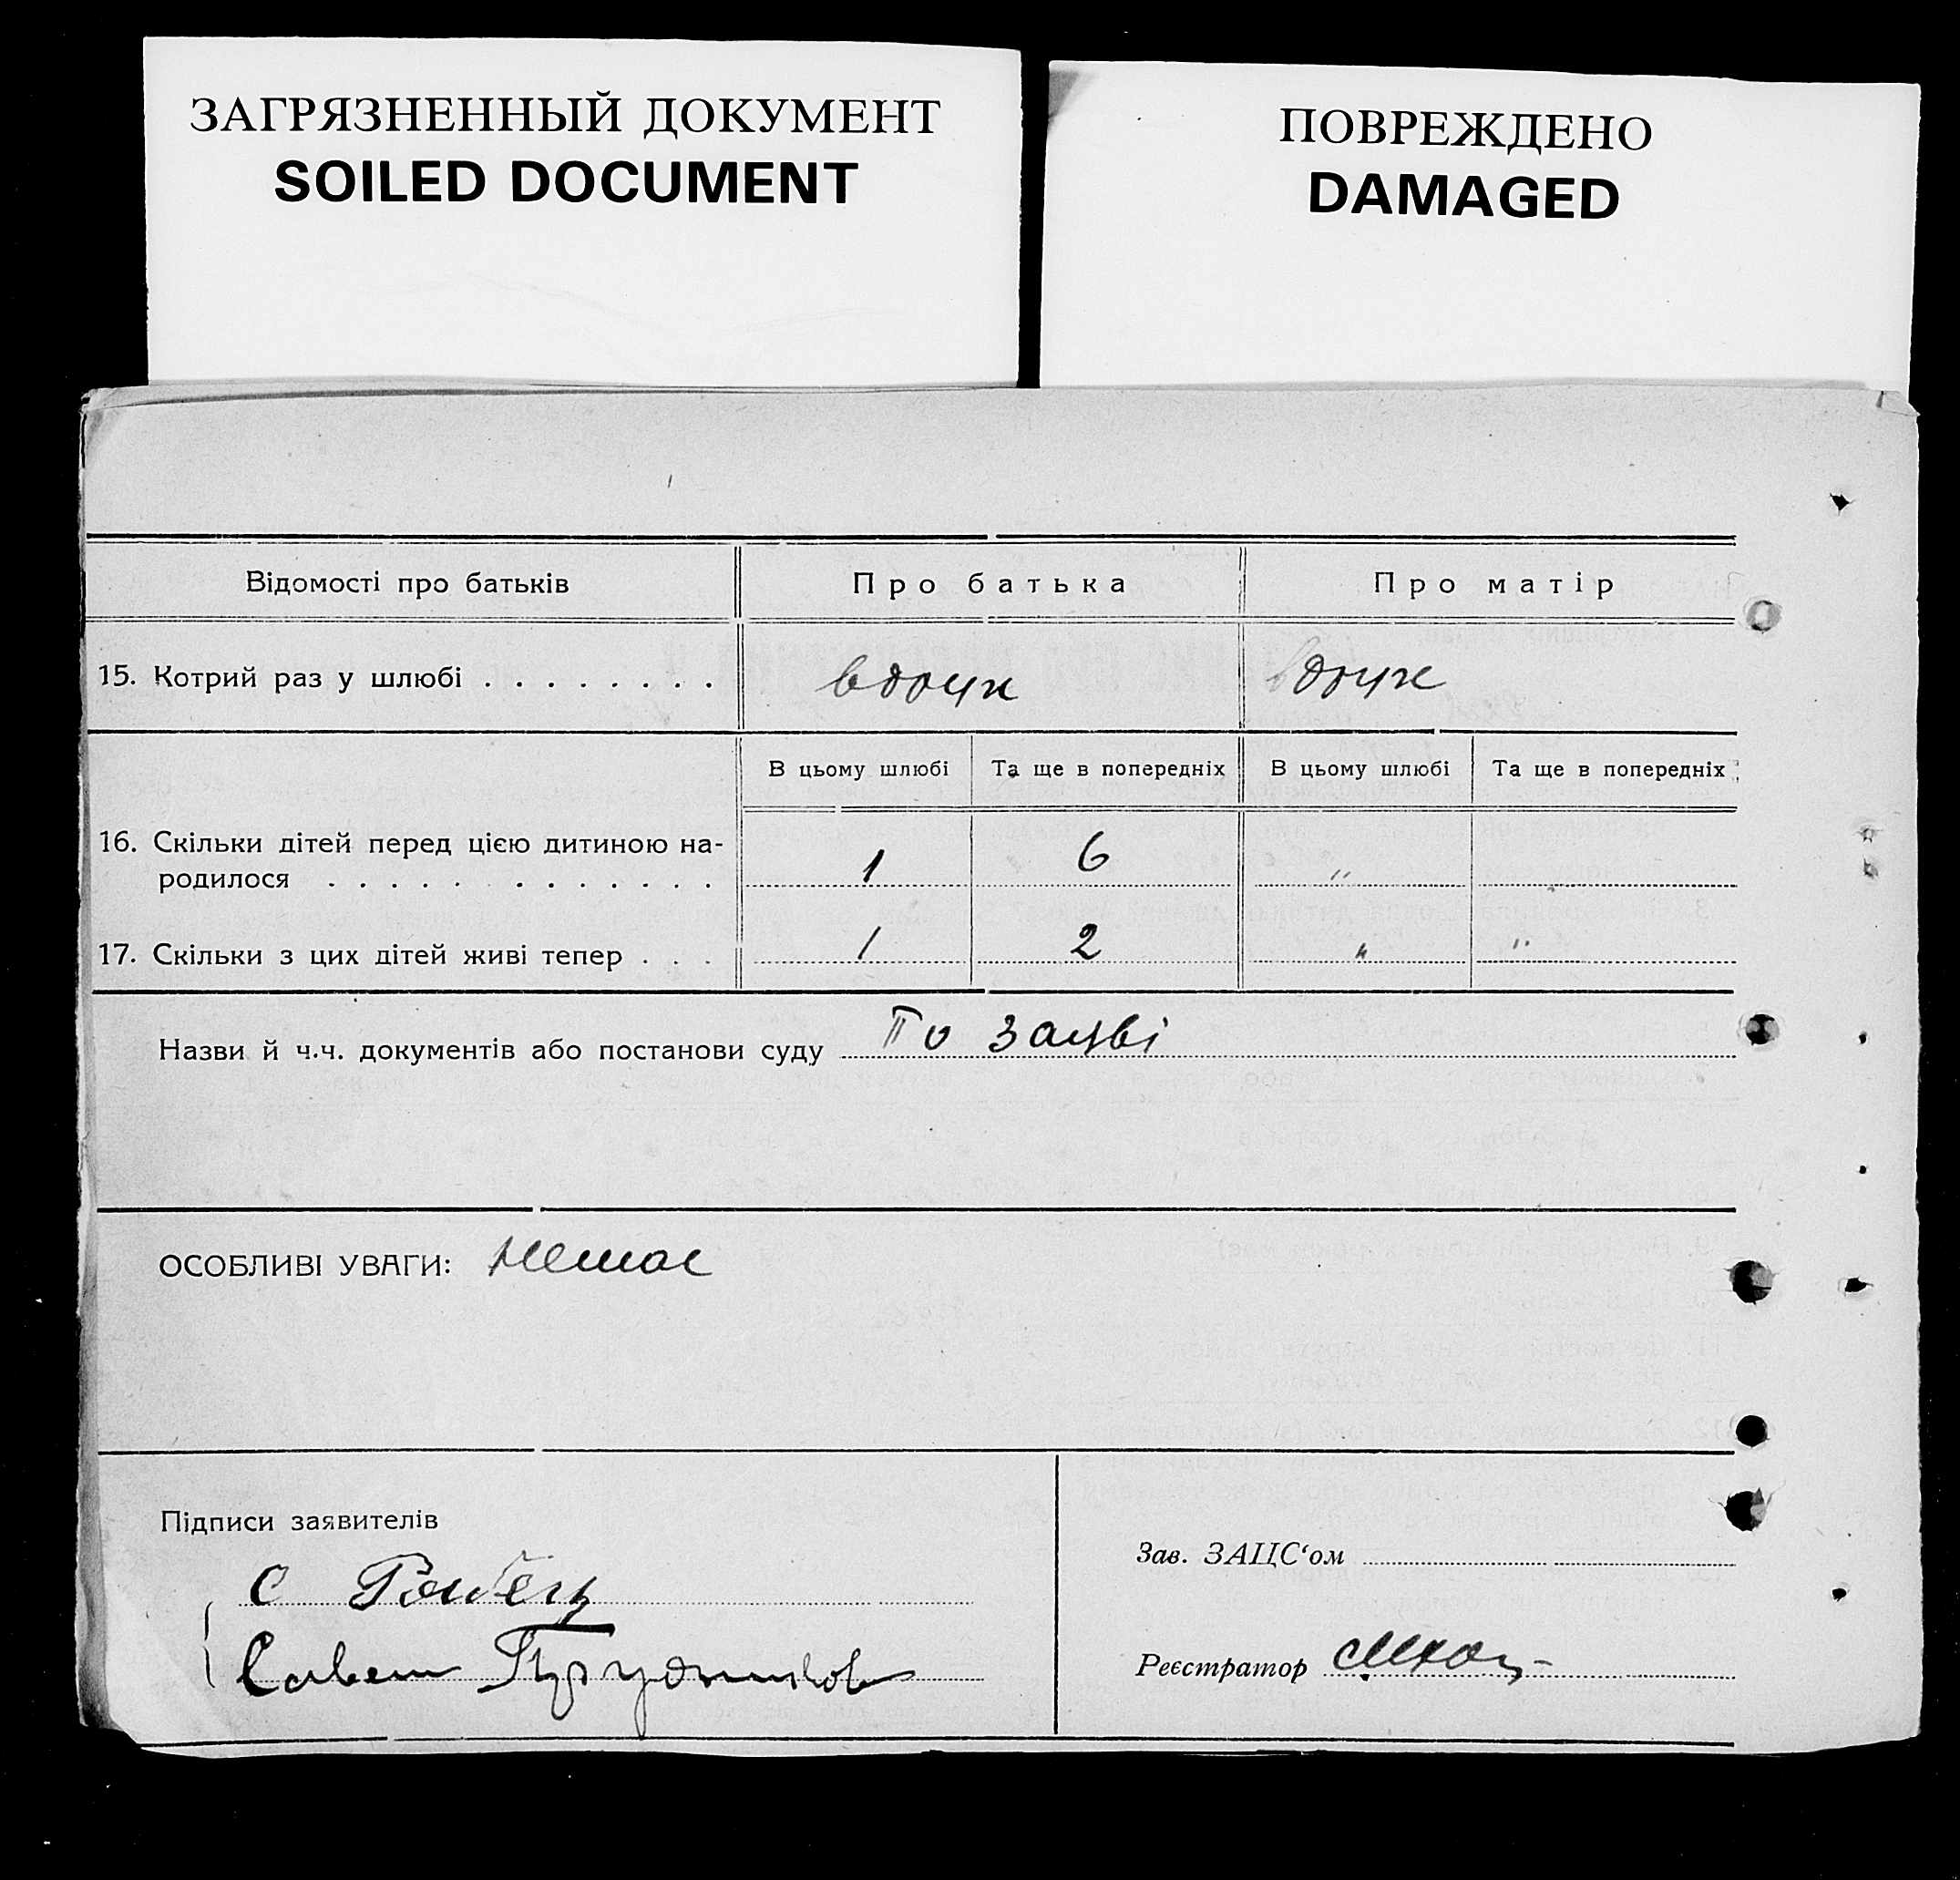 ЗАГРЯЗНЕННЫЙ ДОКУМЕНТ
SOILED DOCUMENT
ПОВРЕЖДЕНО
DAMAGED
Відомості про батьків Про батька Про матір
15. Котрий раз у шлюбі . . . . . . . . вдруге вдруге
В цьому шлюбі Та ще в попередніх В цьому шлюбі Та ще в попередніх
16. Скільки дітей перед цією дитиною на-
родилося . . . . . . . . . . . . . 1 6 "
17. Скільки з цих дітей живі тепер . . . 1 2 " "
Назви й ч.ч. документів або постанови суду По заяві
ОСОБЛИВІ УВАГИ: немає
Підписи заявителів
С
Зав. ЗАЦС‘ом
Реєстратор